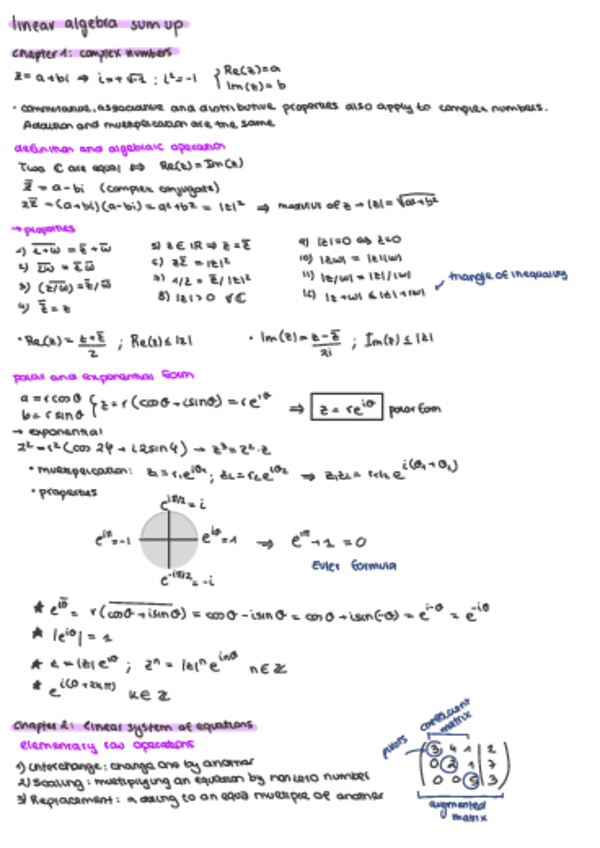 linear algebra sum up
chapter 1: complex numbers
z = a+bi ⇒ i=+√-1 ; i²=-1 { Re(z)=a
Im(z)=b
• commutative, associative and distributive properties also apply to complex numbers.
Addition and multiplication are the same
definition and algebraic operation
Two ℂ are equal ⇔ Re(z)=Im(z)
z̅ = a-bi (complex conjugate)
zz̅ = (a+bi)(a-bi)=a²+b² = |z|² ⇒ modulus of z → |z|=√a²+b²
→ properties
1) \overline{z+w} = z̅ + w̅ 5) z∈ℝ ⇒ z=z̅ 9) |z|=0 ⇔ z=0
2) \overline{zw} = z̅ w̅ 6) zz̅ = |z|² 10) |zw| = |z||w|
3) \overline{(z/w)} = z̅/w̅ 7) 1/z = z̅/|z|² 11) |z/w| = |z|/|w|
4) z̅ = z 8) |z| > 0 ∀ℂ 12) |z+w| ≤ |z|+|w| triangle of inequality
• Re(z) = (z+z̅)/2 ; Re(z) ≤ |z| • Im(z) = (z-z̅)/2i ; Im(z) ≤ |z|
polar and exponential form
a = r cosθ
b = r sinθ { z = r(cosθ + isinθ) = re^{iθ} ⇒ z = re^{iθ} polar form
→ exponential
z² = r²(cos 2φ + i2sinφ) → z³ = z²·z
• multiplication: z₁ = r₁e^{iθ₁} ; z₂ = r₂e^{iθ₂} ⇒ z₁z₂ = r₁r₂e^{i(θ₁+θ₂)}
• properties
e^{iπ/2} = i
e^{iπ} = -1 e^{i0} = 1 ⇒ e^{iπ} + 1 = 0
e^{-iπ/2} = -i Euler formula
★ e^{iθ̅} = r(\overline{cosθ + isinθ}) = cosθ - isinθ = cosθ + isin(-θ) = e^{i-θ} = e^{-iθ}
★ |e^{iθ}| = 1
★ z = |z|e^{iθ} ; zⁿ = |z|ⁿe^{inθ} n∈ℤ
★ e^{i(θ+2kπ)} k∈ℤ
chapter 2: linear system of equations
elementary row operations
1) Interchange: change one by another
2) Scaling: multiplying an equation by nonzero number
3) Replacement: adding to an equa multiple of another
coefficient
matrix
pivots
3 4 1 | 2
0 2 1 | 7
0 0 5 | 3
augmented
matrix